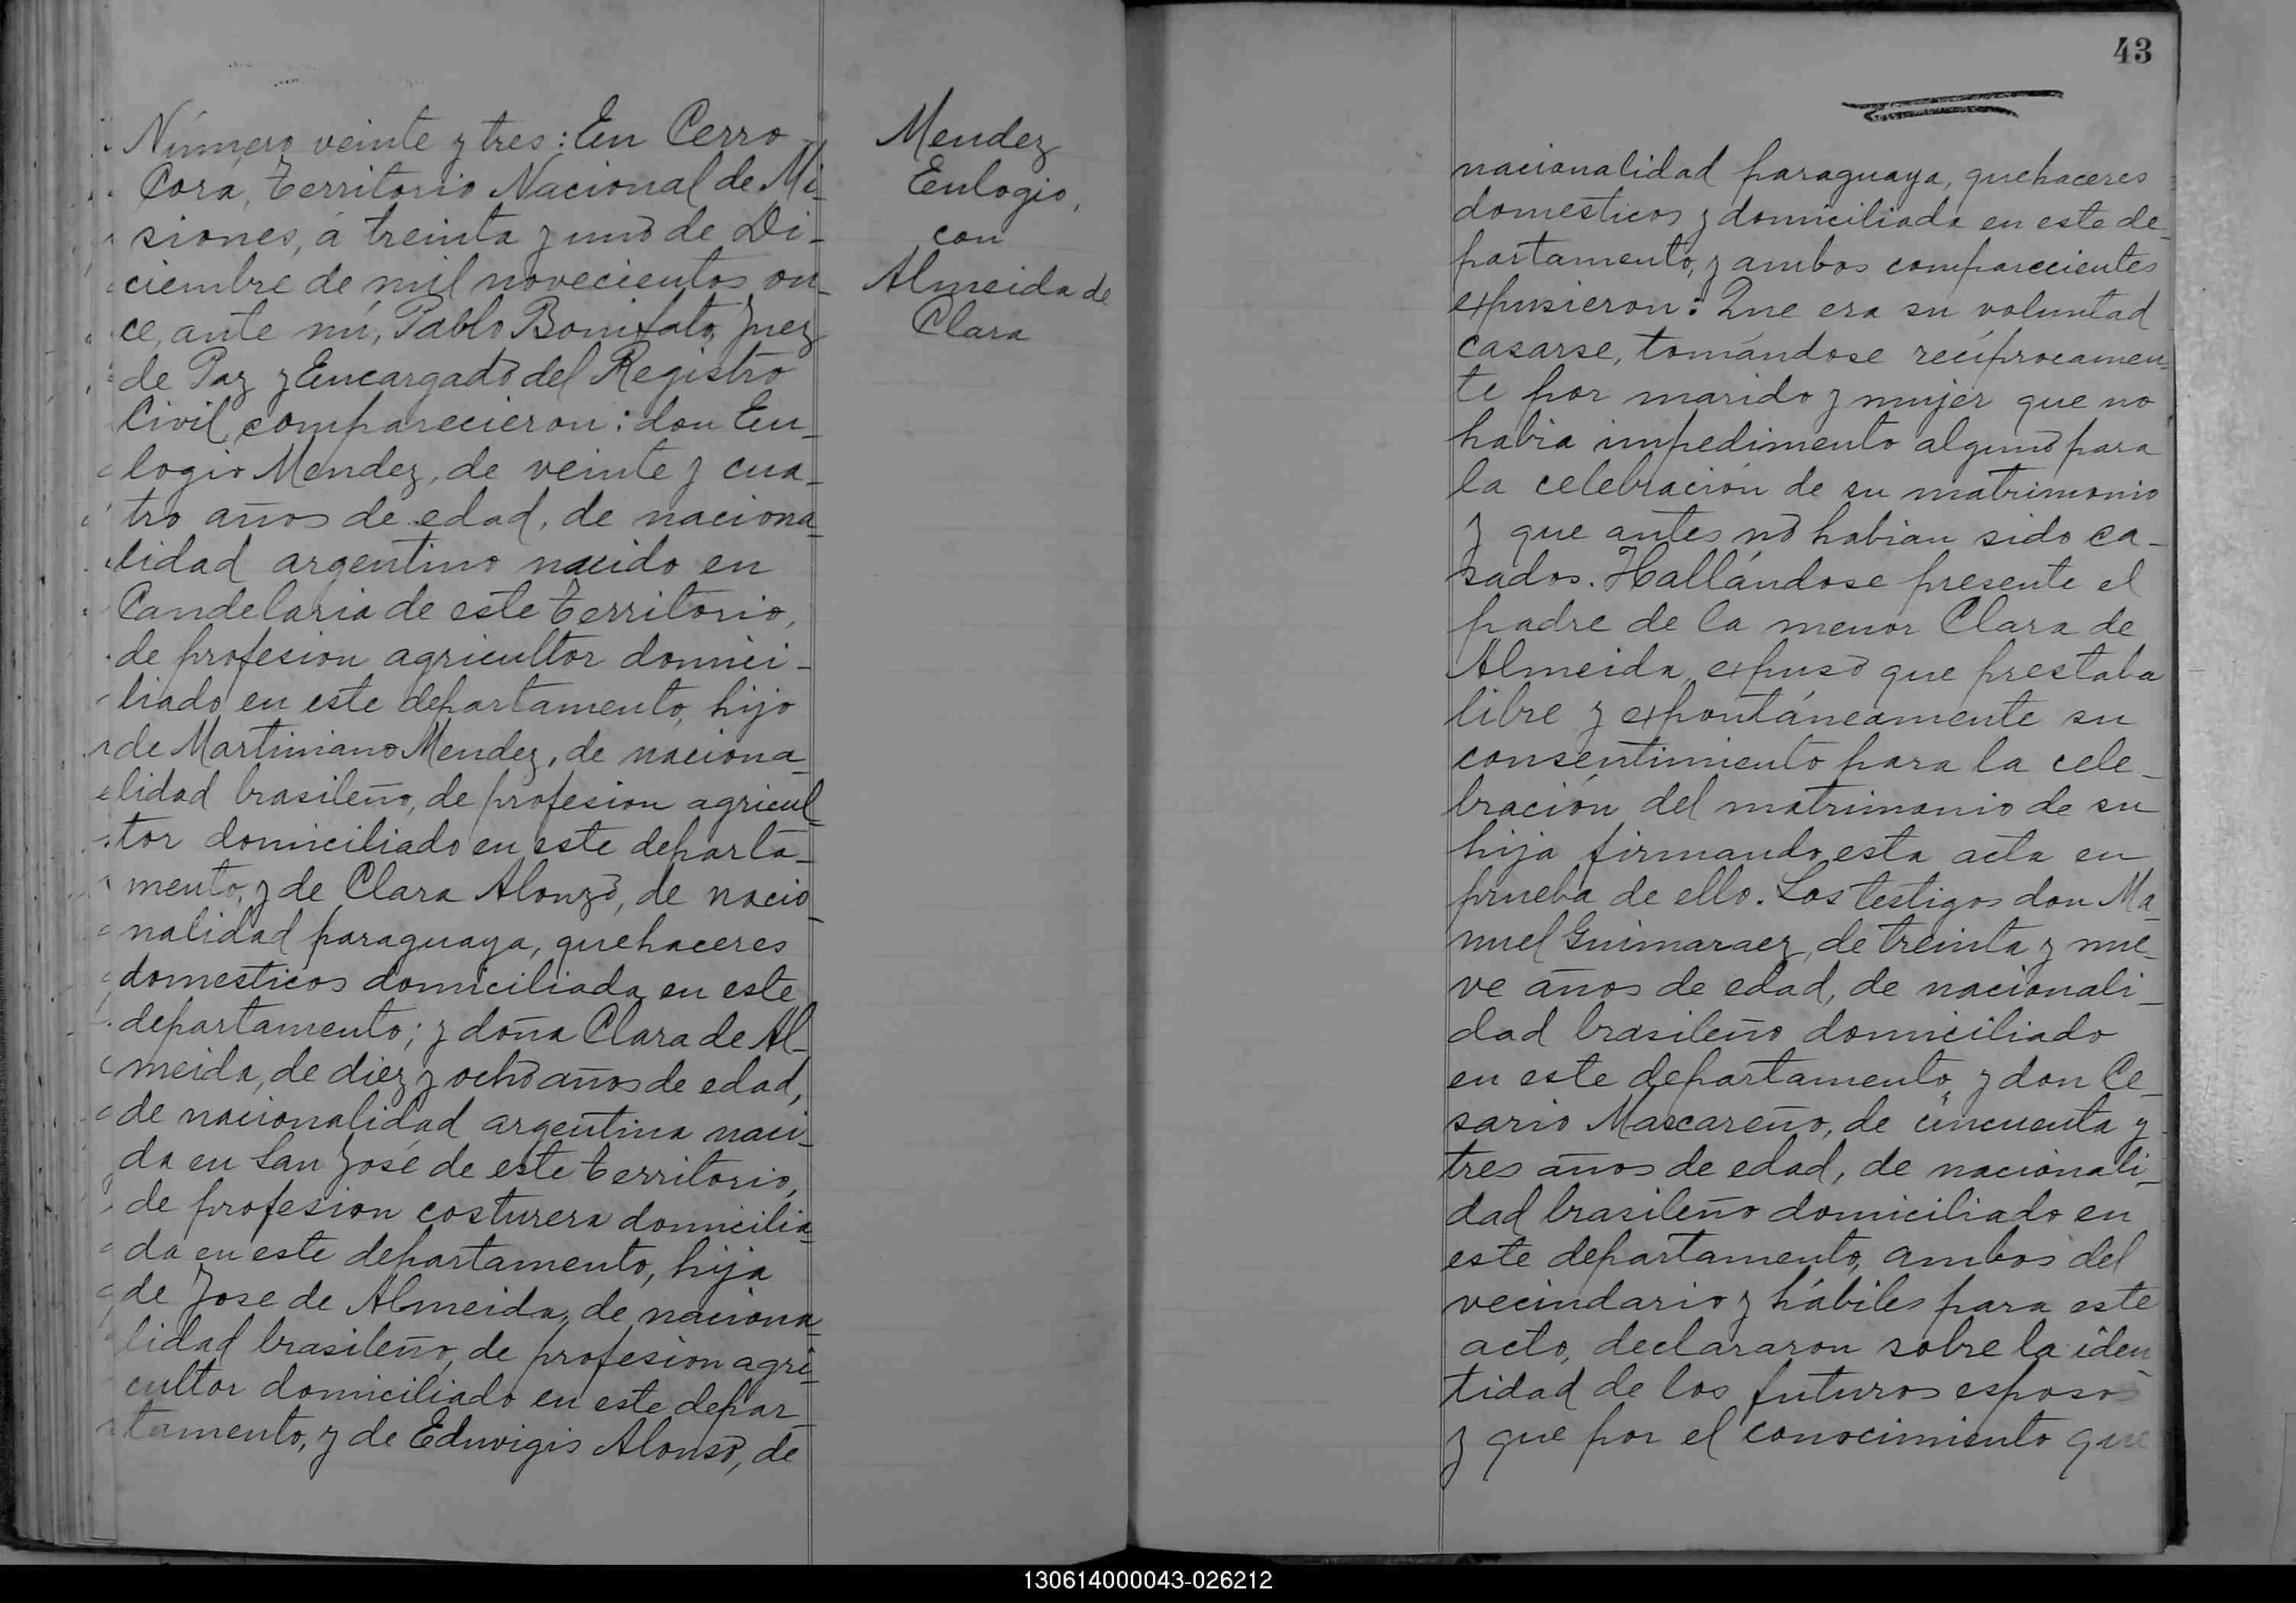 Número veinte y tres: En Cerro
Corá, Territorio Nacional de Mi-
siones, á treinta y uno de Di-
ciembre de mil novecientos on-
ce, ante mí, Pablo Bonifato, Juez
de Paz y Encargado del Registro
Civil, comparecieron: don Eu-
logio Mendez, de veinte y cua-
tro años de edad, de naciona-
lidad argentino nacido en
Candelaria de este territorio,
de profesion agricultor domici-
liado en este departamento, hijo
de Martiniano Mendez, de naciona-
lidad brasileño, de profesion agricul-
tor domiciliado en este departa-
mento, y de Clara Alonzo, de nacio-
nalidad paraguaya, quehaceres
domesticos domiciliada en este
departamento; y doña Clara de Al-
meida, de diez y ocho años de edad,
de nacionalidad argentina naci-
da en San José de este territorio,
de profesion costurera domicilia-
da en este departamento, hija
de Jose de Almeida, de naciona-
lidad brasileño, de profesion agri-
cultor domiciliado en este depar-
tamento, y de Eduvigis Alonso, de
Mendez
Eulogio,
con
Almeida de
Clara
43
nacionalidad paraguaya, quehaceres
domesticos y domiciliada en este de-
partamento, y ambos comparecientes
expusieron: Que era su voluntad
casarse, tomándose recíprocamen-
te por marido y mujer que no
habia impedimento alguno para
la celebración de su matrimonio
y que antes no habian sido ca-
sados. Hallándose presente el
padre de la menor Clara de
Almeida, expuso que prestaba
libre y expontáneamente su
consentimiento para la cele-
bración del matrimonio de su
hija firmando esta acta en
prueba de ello. Los testigos don Ma-
nuel Guimaraez, de treinta y nue-
ve años de edad, de nacionali-
dad brasileño domiciliado
en este departamento, y don Ce-
sario Mascareño, de cincuenta y
tres años de edad, de nacionali-
dad brasileño domiciliado en
este departamento, ambos del
vecindario y hábiles para este
acto, declararon sobre la iden
tidad de los futuros esposos
y que por el conocimiento que
130614000043-026212